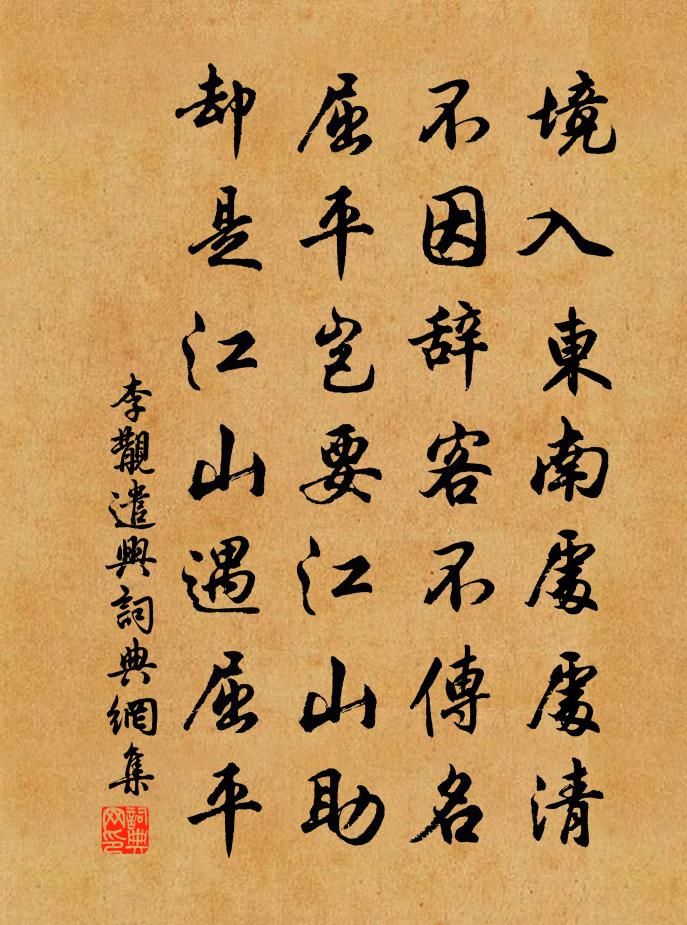 境入東南處處清
不因辞客不傳名
屈平岂要江山助
却是江山遇屈平
李覯遣興詞典網集
詞典网印